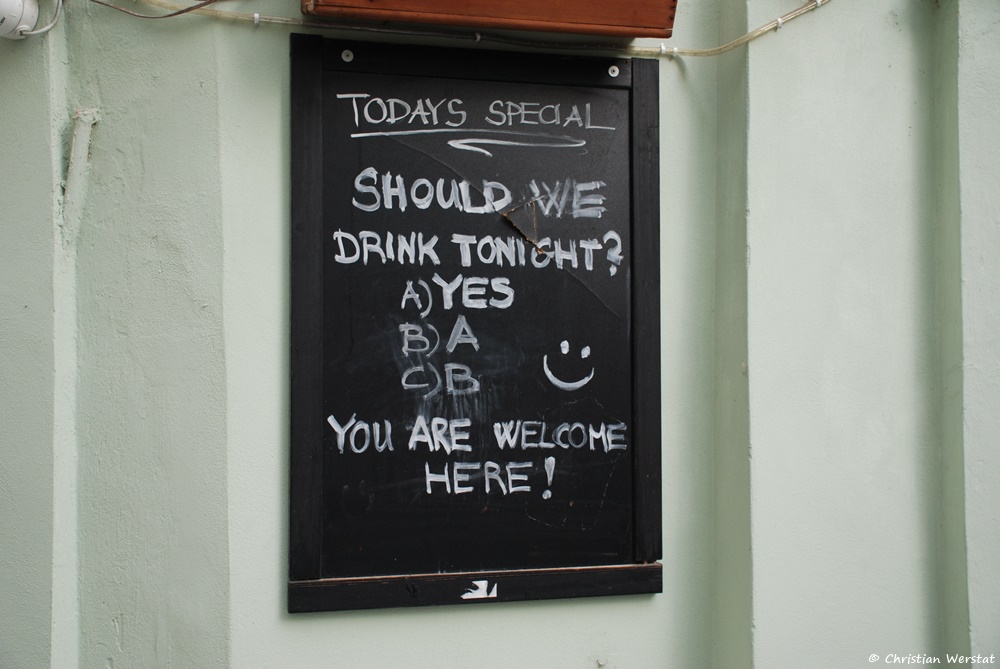 TODAYS SPECIAL
SHOULD WE
DRINK TONIGHT?
A) YES
B) A
C) B
YOU ARE WELCOME
HERE!
© Christian Werstat